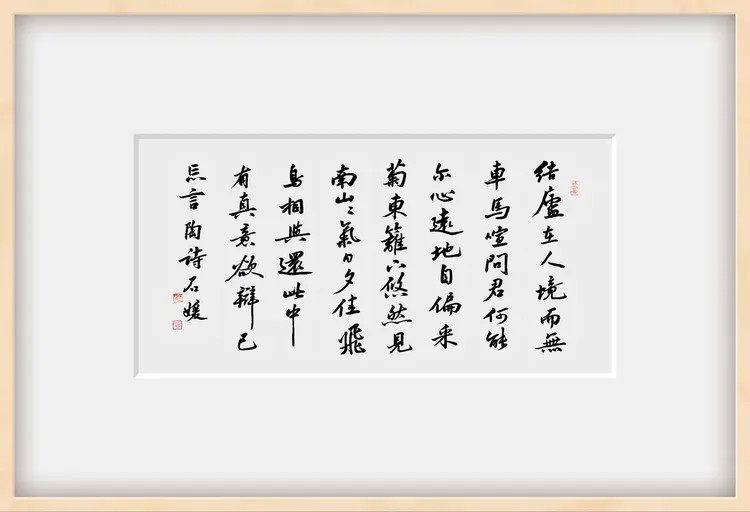 結廬在人境而無
車馬喧問君何能
尔心遠地自偏采
菊東籬下悠然見
南山〻氣日夕佳飛
鳥相與還此中
有真意欲辯已
忘言陶詩石媛